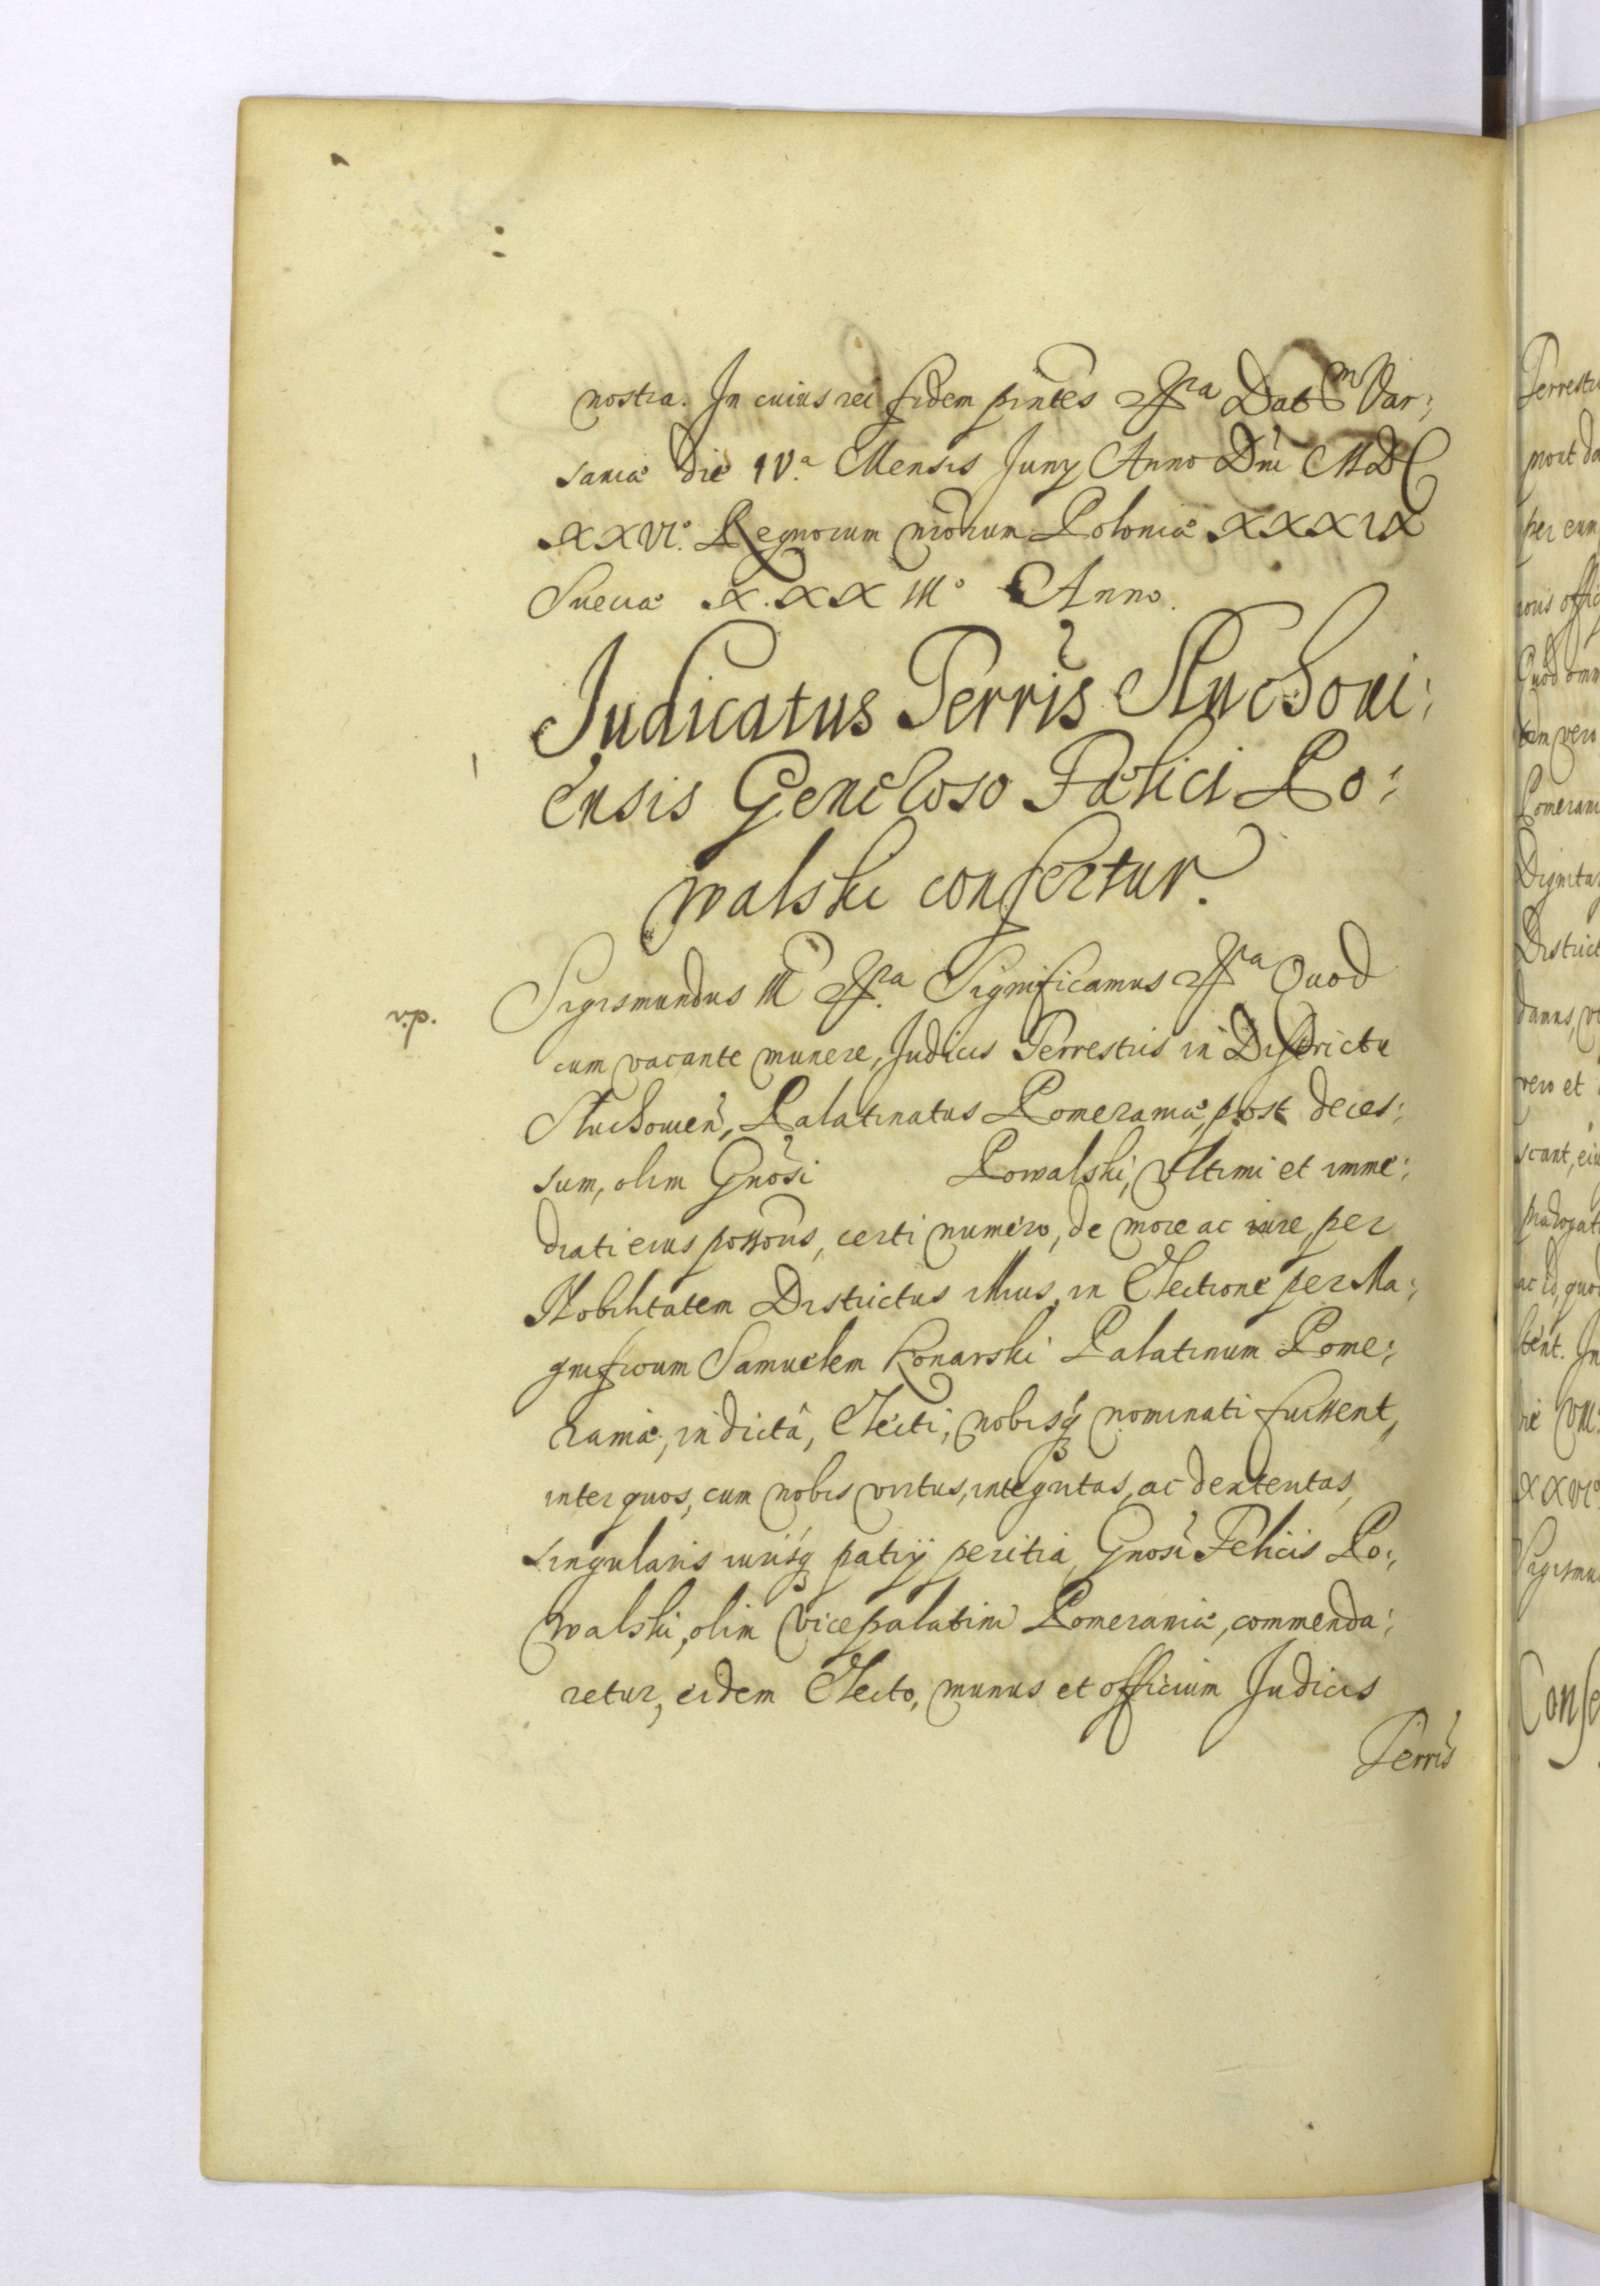 nostra. In cuius rei fidem pñtes &ra Dat m Var:
saviæ die IV.a Mensis Juny Anno Dñi MDC
XXVI.o Regnorum nrõrum Poloniæ XXXIX
Sueciæ X.XX IIIo Anno.
Judicatus Terris̃ Sluchoui:
ensis Generoso Fælici Po:
walski confertur.
Sigismundus III &ra Significamus &a Quod
cum vacante munere, Judicis Terrestris in Districtu
Sluchouien̄, Palatinatus Pomeraniæ, post deces:
sum, olim Gnõsi Powalski, Vltimi et imme:
diati eius possoris, certi numero, de more ac iure, per
Nobilitatem Districtus illius, in Electione per Ma:
gnificum Samuelem Konarski Palatinum Pome:
raniæ, indictâ, Electi, nobisq́ nominati fuissent,
inter quos, cum nobis virtus, integritas, ac dexteritas,
singularis iurisq́ patrij peritia, Gnosi Felicis Po:
walski, olim Vicepalatini Pomeraniæ, commenda:
retur, eidem Electo, munus et officium Judicis
Terris̃
Terrestri
per eum
Quod omn
Pomerani
Dignitat
District
vero et
ac id, quod
XXVIo
Sigismu
Confe